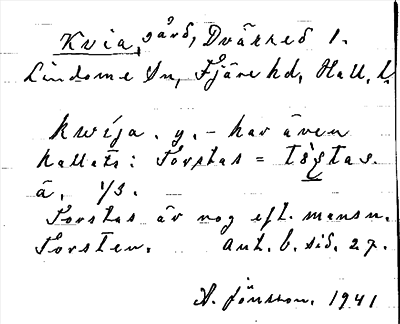 Kvia, gård, Dvärred 1.
Lindome Sn, Fjäre hd, Hall. l.
kwíja. y. - har även
kallats: Torstas = tòstas.
ä. 1/3.
Torstas är nog eft. mansn.
Torsten. Ant. b. sid. 27.
A. Jönsson. 1941